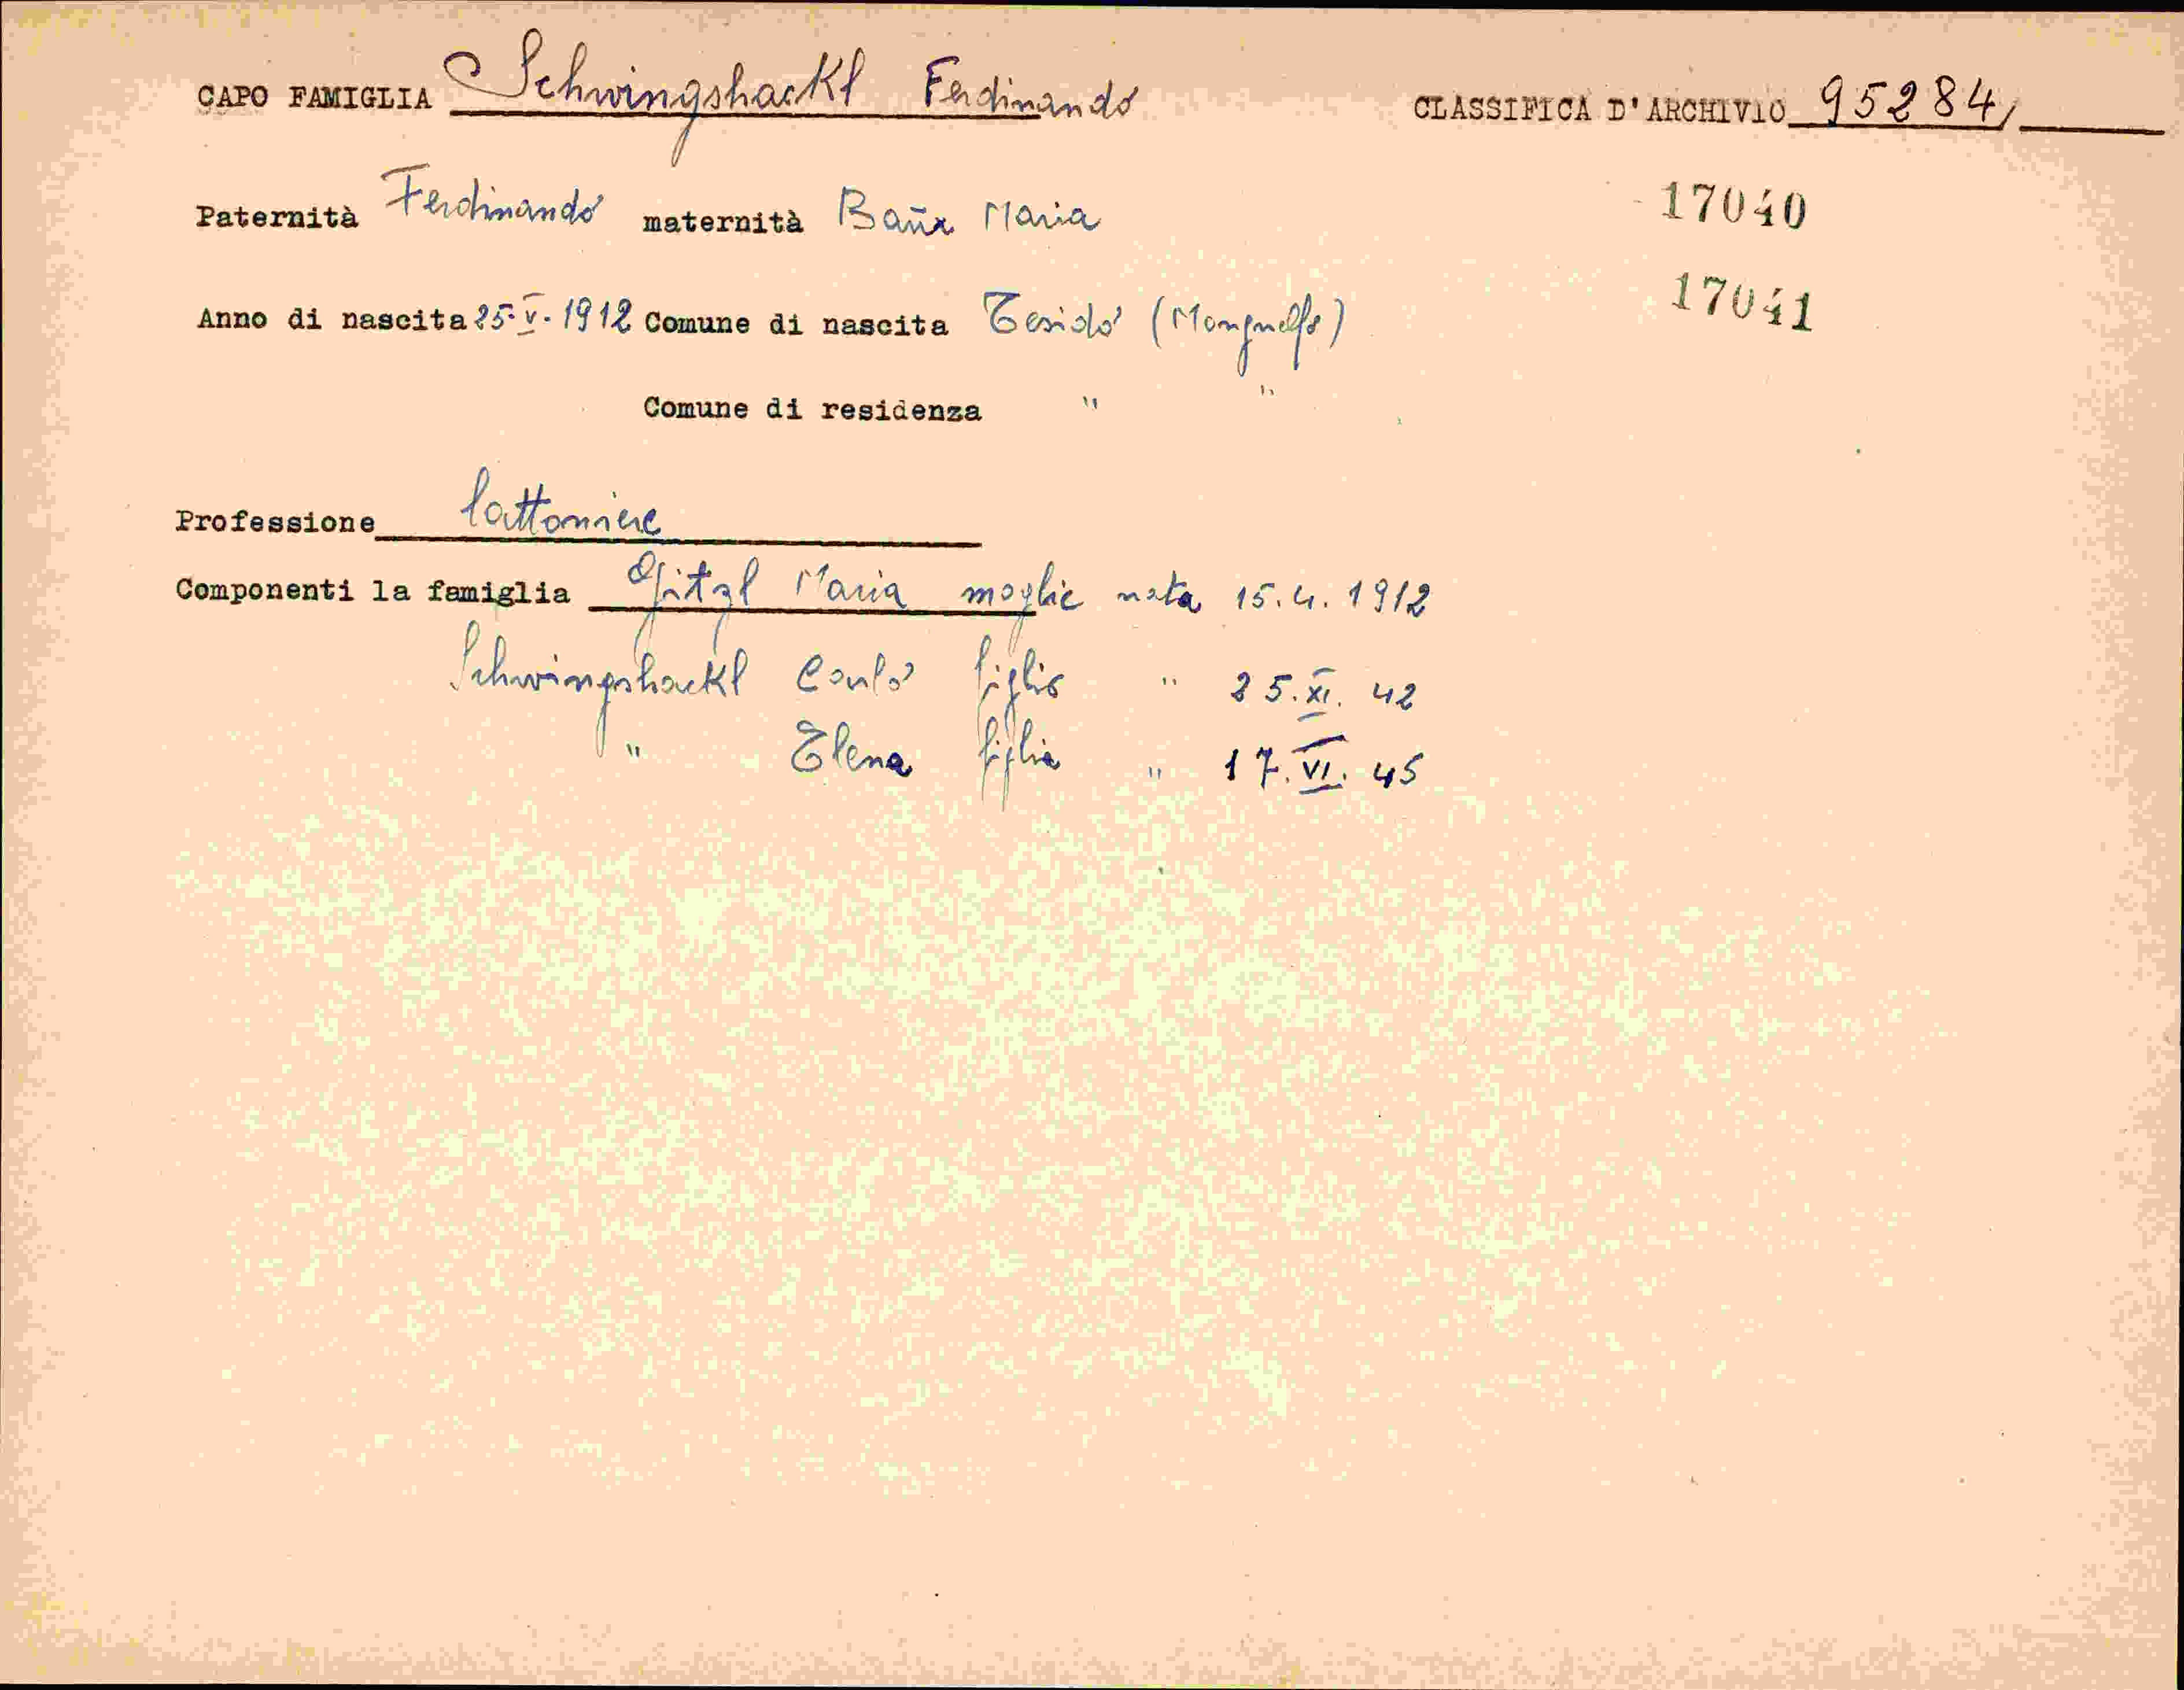 CAPO FAMIGLIA Schwingshackl Ferdinando CLASSIFICA D'ARCHIVIO 95284/
Paternità Ferdinando maternità Baur Maria 17040
17041
Anno di nascita 25.V.1912 Comune di nascita Tesido (Monguelfo)
Comune di residenza " "
Professione lattoniere
Componenti la famiglia Maria moglie nata 15.4.1912
Schwingshackl Carlo figlio " 25.XI.42
" Elena figlia " 17.VI.45